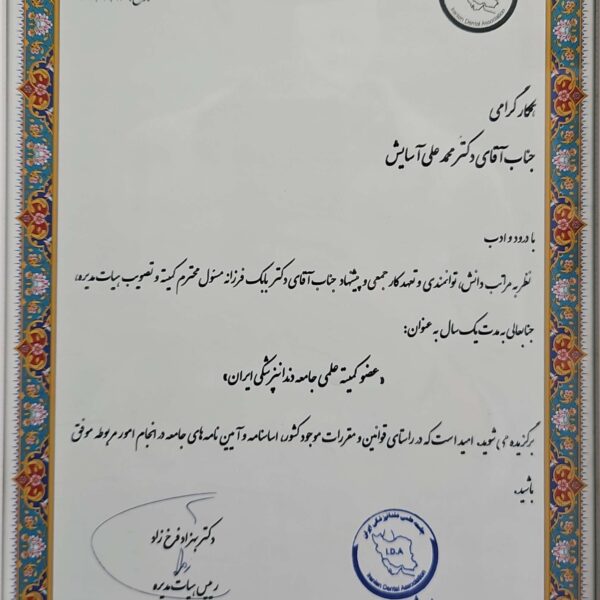 Iranian Dental Association
همکار گرامی
جناب آقای دکتر محمد علی آسایش
با درود و ادب
نظر به مراتب دانش، توانمندی و تعهد کار جمعی و پیشنهاد جناب آقای دکتر بابک فرزانه مسئول محترم کمیته و تصویب هیات مدیره،
جنابعالی به مدت یک سال به عنوان:
«عضو کمیته علمی جامعه دندانپزشکی ایران»
برگزیده می شوید. امید است که در راستای قوانین و مقررات موجود کشور، اساسنامه و آیین نامه های جامعه در انجام امور مربوطه موفق
باشید.
دکتر بهزاد فرخ زاد
رییس هیات مدیره
I.D.A
Iranian Dental Association